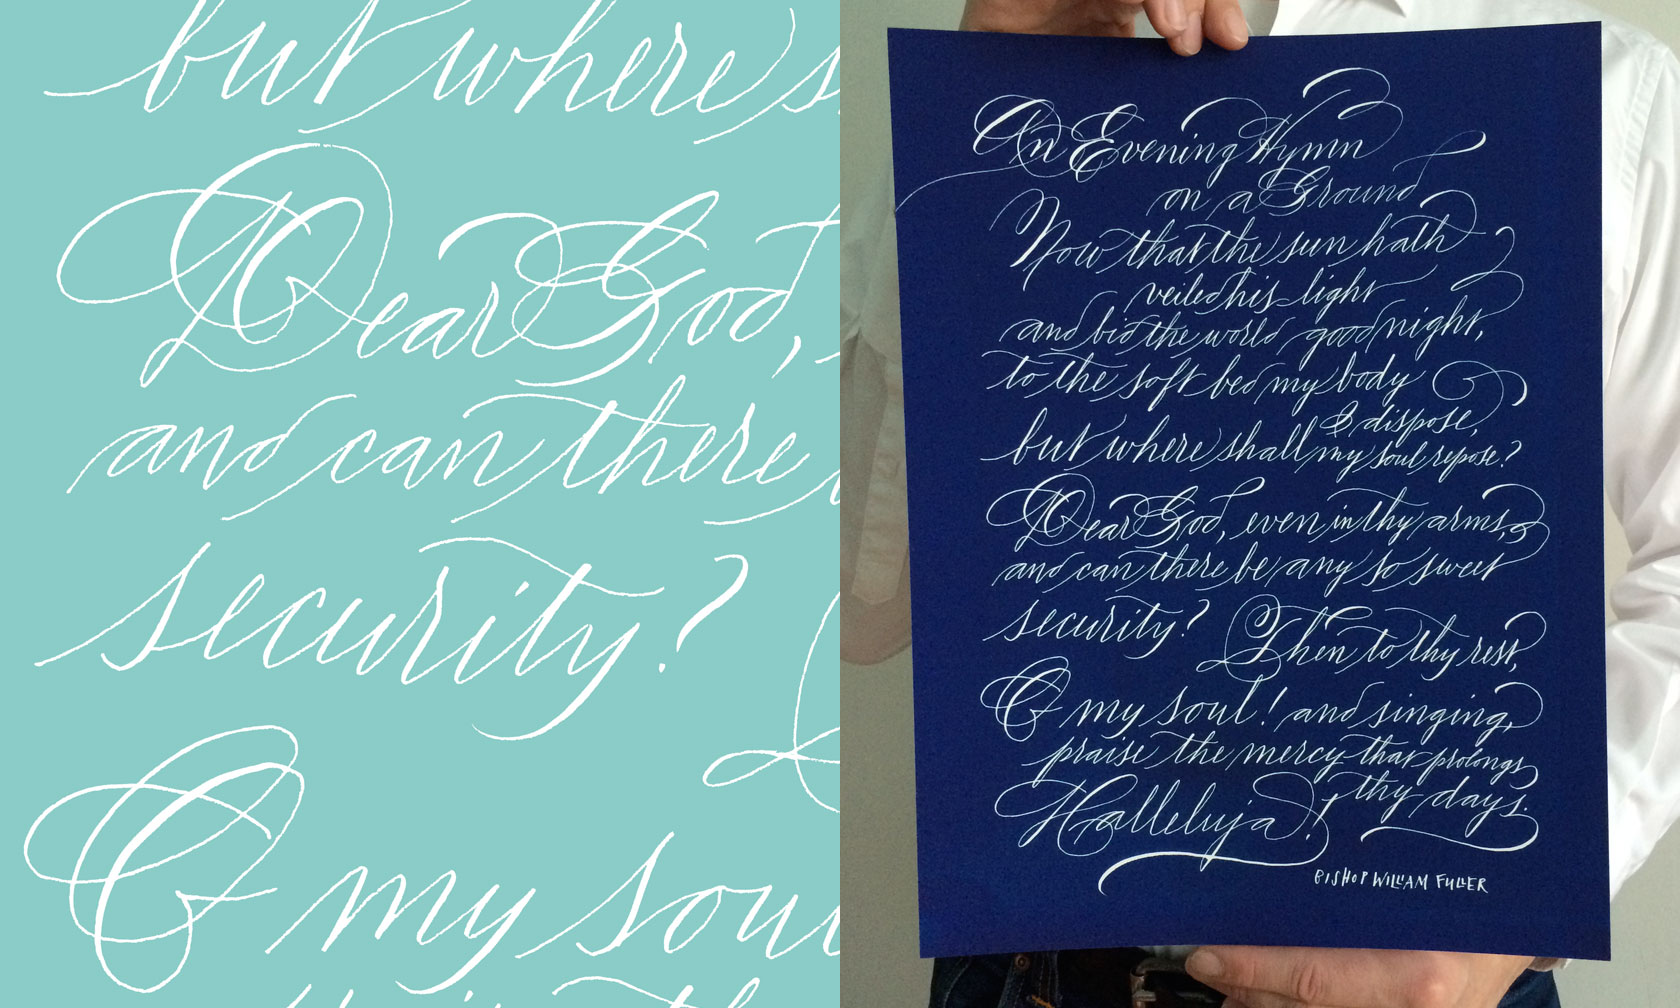 but where s
Dear God,
and can there
security?
O my soul
An Evening Hymn
on a Ground
Now that the sun hath
veiled his light
and bid the world good night,
to the soft bed my body
I dispose,
but where shall my soul repose?
Dear God, even in thy arms,
and can there be any so sweet
security? Then to thy rest,
O my soul! and singing,
praise the mercy that prolongs
thy days.
Halleluja!
BISHOP WILLIAM FULLER